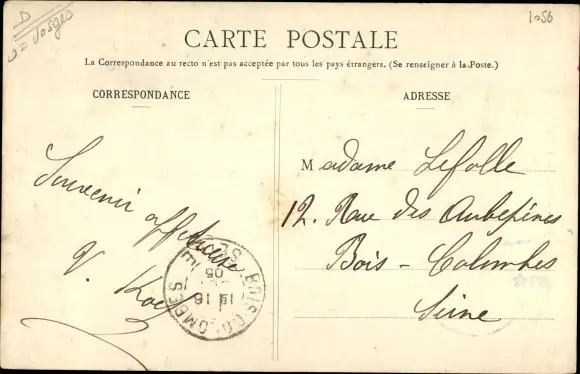 D
Vosges
1056
CARTE POSTALE
La Correspondance au recto n'est pas acceptée par tous les pays étrangers. (Se renseigner à la Poste.)
CORRESPONDANCE
ADRESSE
Souvenir affectueux
Madame Lefolle
12. Rue des Aubépines
Bois - Colombes
Seine
BOIS-COLOMBES
16
05